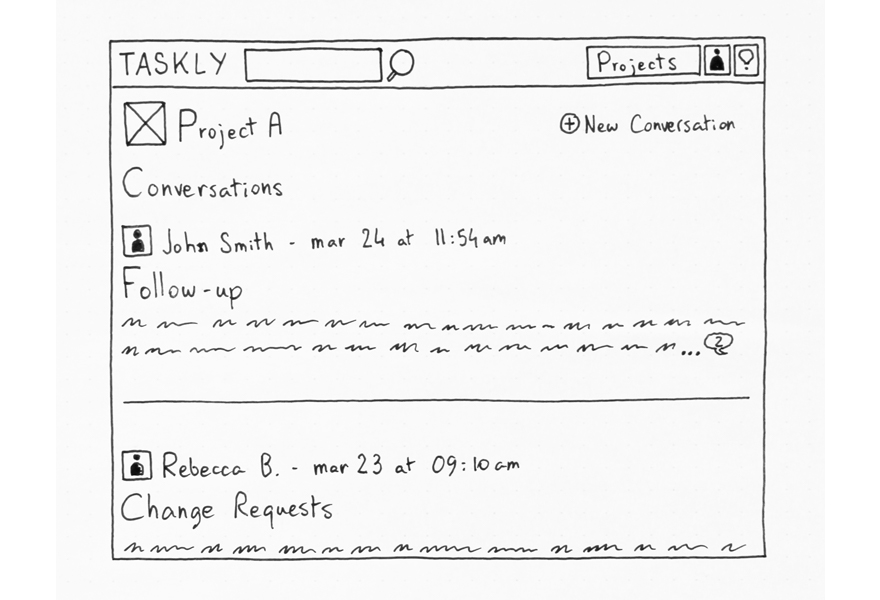 TASKLY Projects
Project A New Conversation
Conversations
John Smith - mar 24 at 11:54am
Follow-up
... 2
Rebecca B. - mar 23 at 09:10am
Change Requests